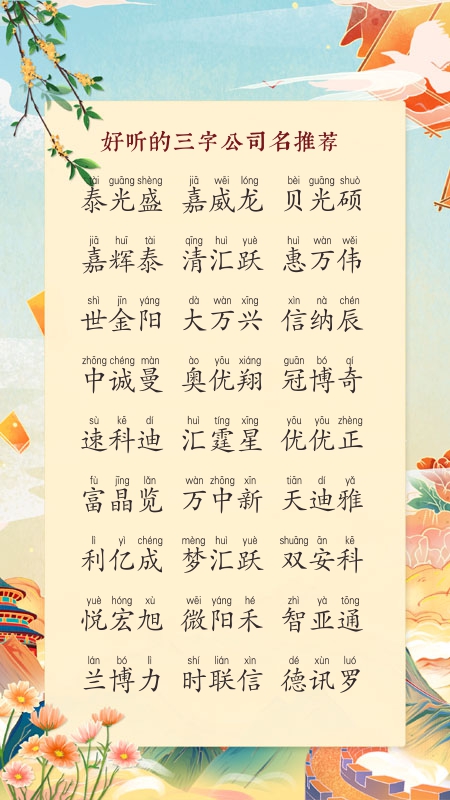 好听的三字公司名推荐
tài guāng shèng jiā wēi lóng bèi guāng shuò
泰光盛 嘉威龙 贝光硕
jiā huī tài qīng huì yuè huì wàn wěi
嘉辉泰 清汇跃 惠万伟
shì jīn yáng dà wàn xīng xìn nà chén
世金阳 大万兴 信纳辰
zhōng chéng màn ào yōu xiáng guān bó qí
中诚曼 奥优翔 冠博奇
sù kē dí huì tíng xīng yōu yōu zhèng
速科迪 汇霆星 优优正
fù jīng lǎn wàn zhōng xīn tiān dí yǎ
富晶览 万中新 天迪雅
lì yì chéng mèng huì yuè shuāng ān kē
利亿成 梦汇跃 双安科
yuè hóng xù wēi yáng hé zhì yà tōng
悦宏旭 微阳禾 智亚通
lán bó lì shí lián xìn dé xùn luó
兰博力 时联信 德讯罗